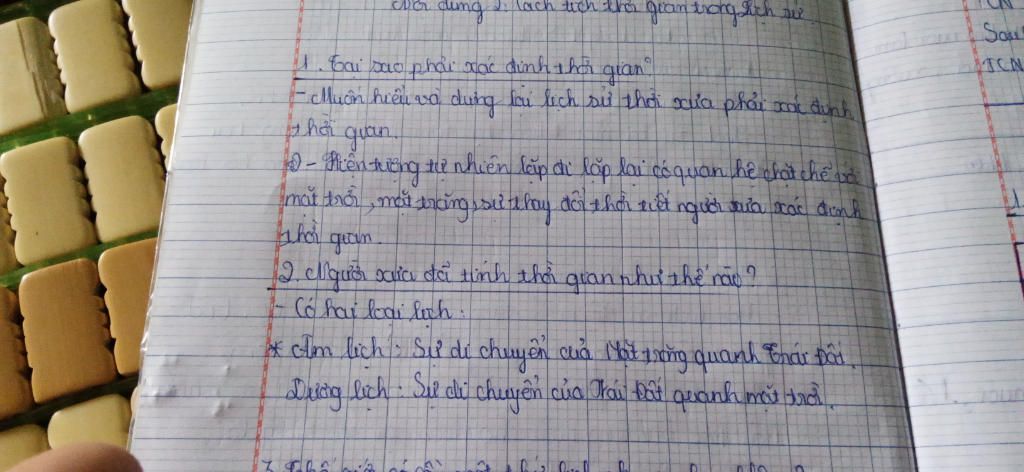 dung 2: Cách tích thời gian trong lịch sử.
TCN
Sau
TCN
1. Tại sao phải xác định thời gian?
- Muốn hiểu và dựng lại lịch sử thời xưa phải xác định
thời gian.
- Hiện tượng tự nhiên lặp đi lặp lại có quan hệ chặt chẽ với
mặt trời, mặt trăng, sự thay đổi thời tiết người xưa xác định
thời gian.
2. Người xưa đã tính thời gian như thế nào?
- Có hai loại lịch:
* Âm lịch: Sự di chuyển của Mặt trăng quanh Trái Đất.
Dương lịch: Sự di chuyển của Trái Đất quanh mặt trời.